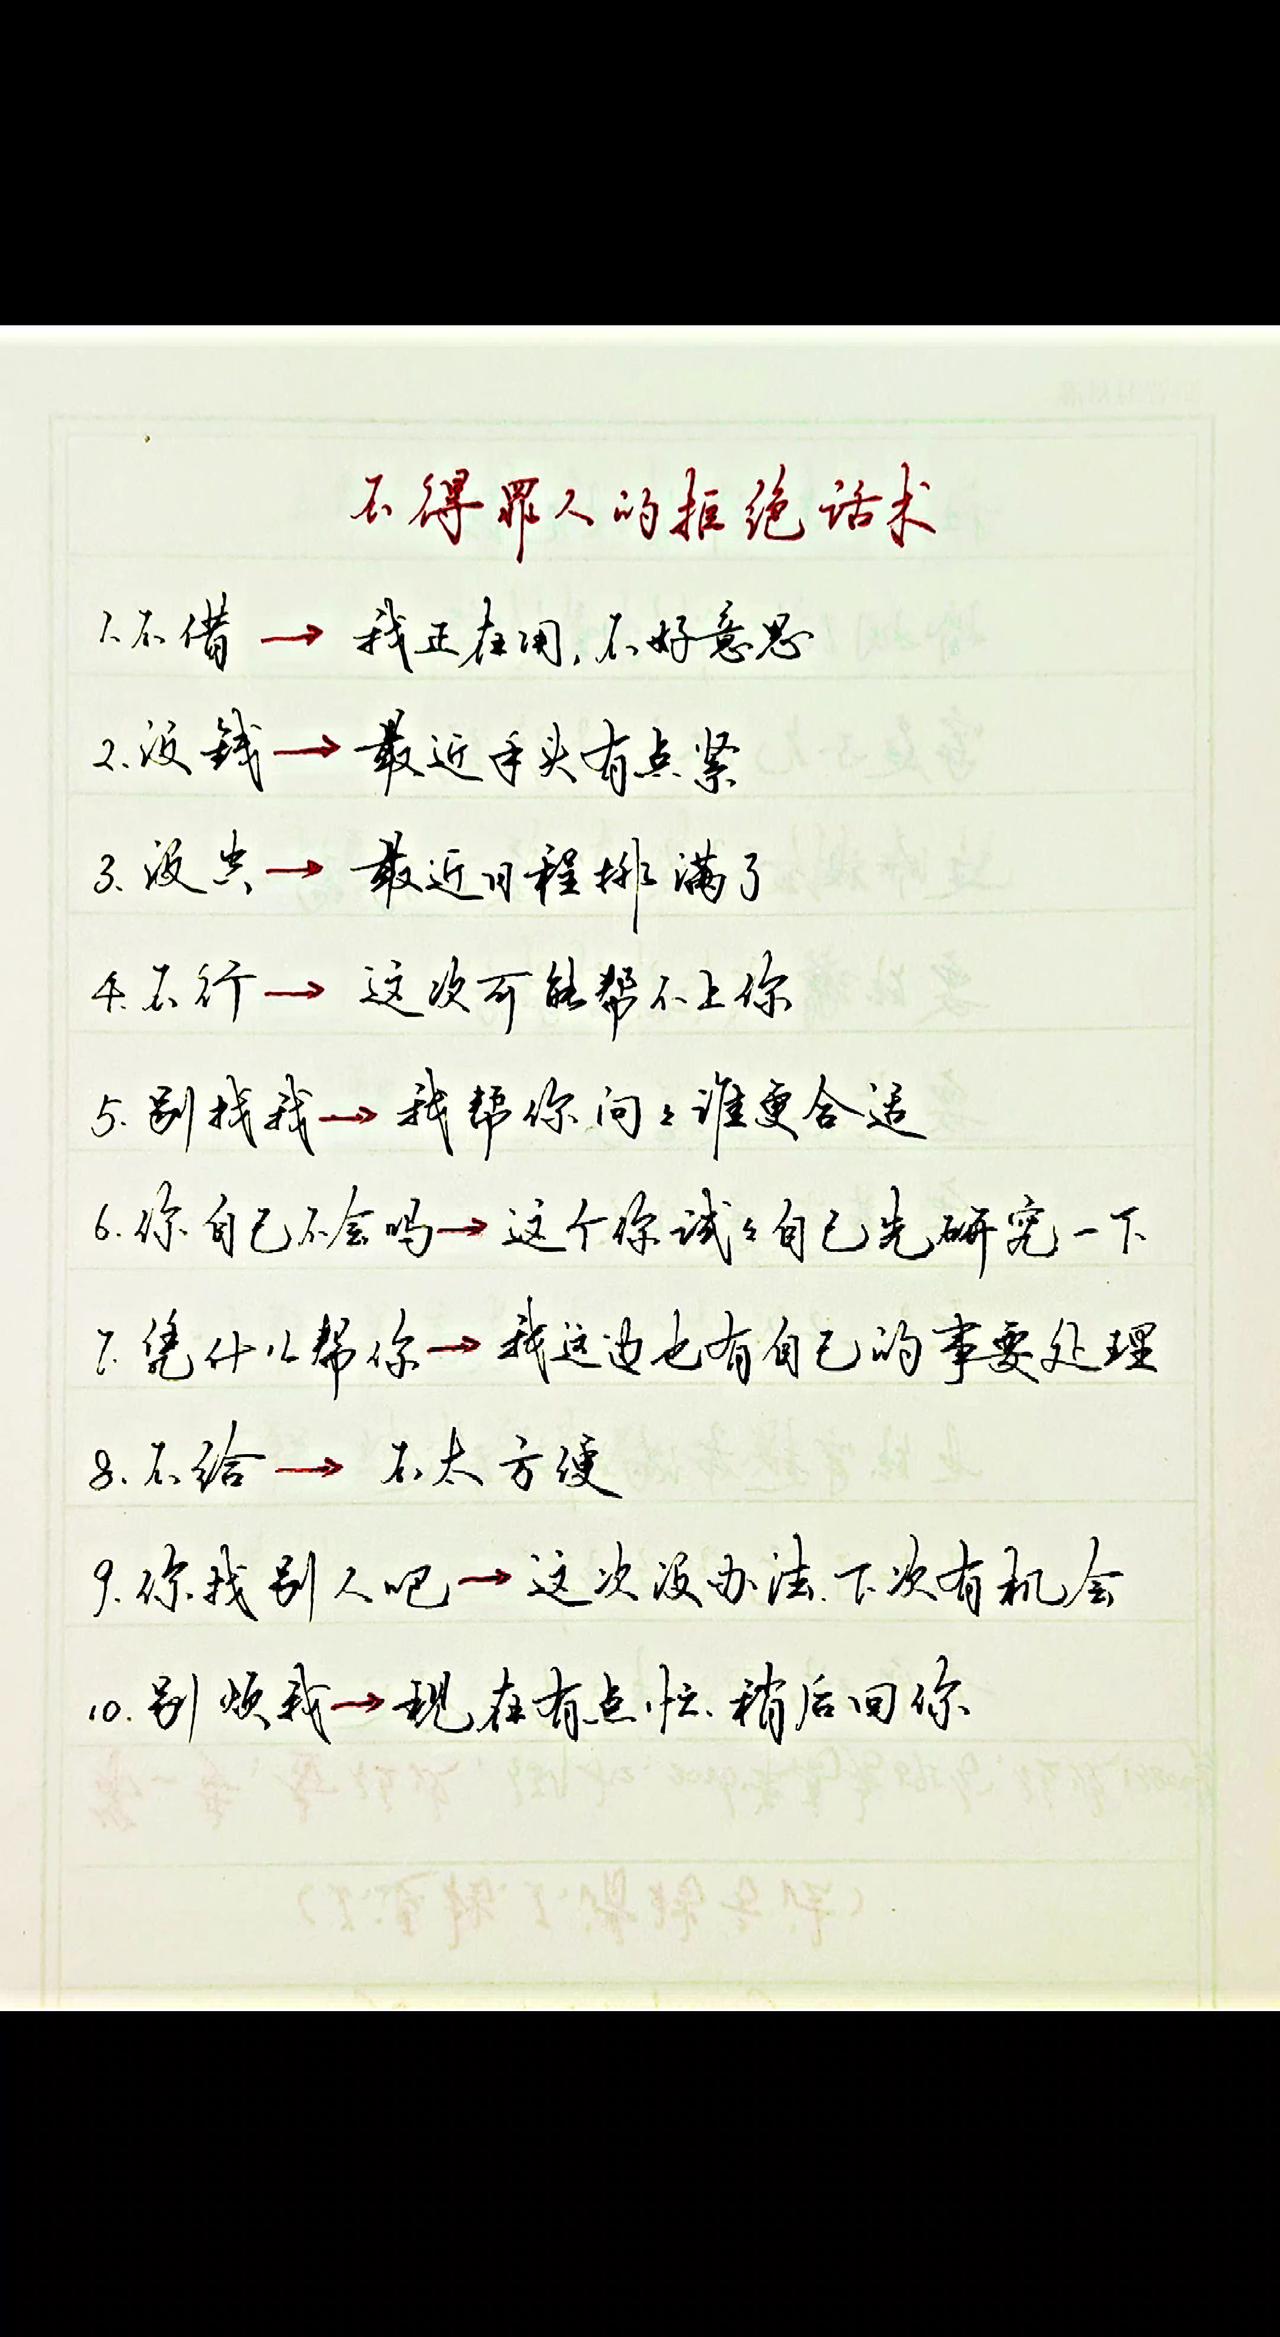 不得罪人的拒绝话术
1.不借→我正在用,不好意思
2.没钱→最近手头有点紧
3.没共→最近日程排满了
4.不行→这次可能帮不上你
5.别找我→我帮你问々谁更合适
6.你自己不会吗→这个你试々自己先研究一下
7.凭什么帮你→我这边也有自己的事要处理
8.不给→不太方便
9.你找别人吧→这次没办法.下次有机会
10.别烦我→现在有点忙.稍后回你